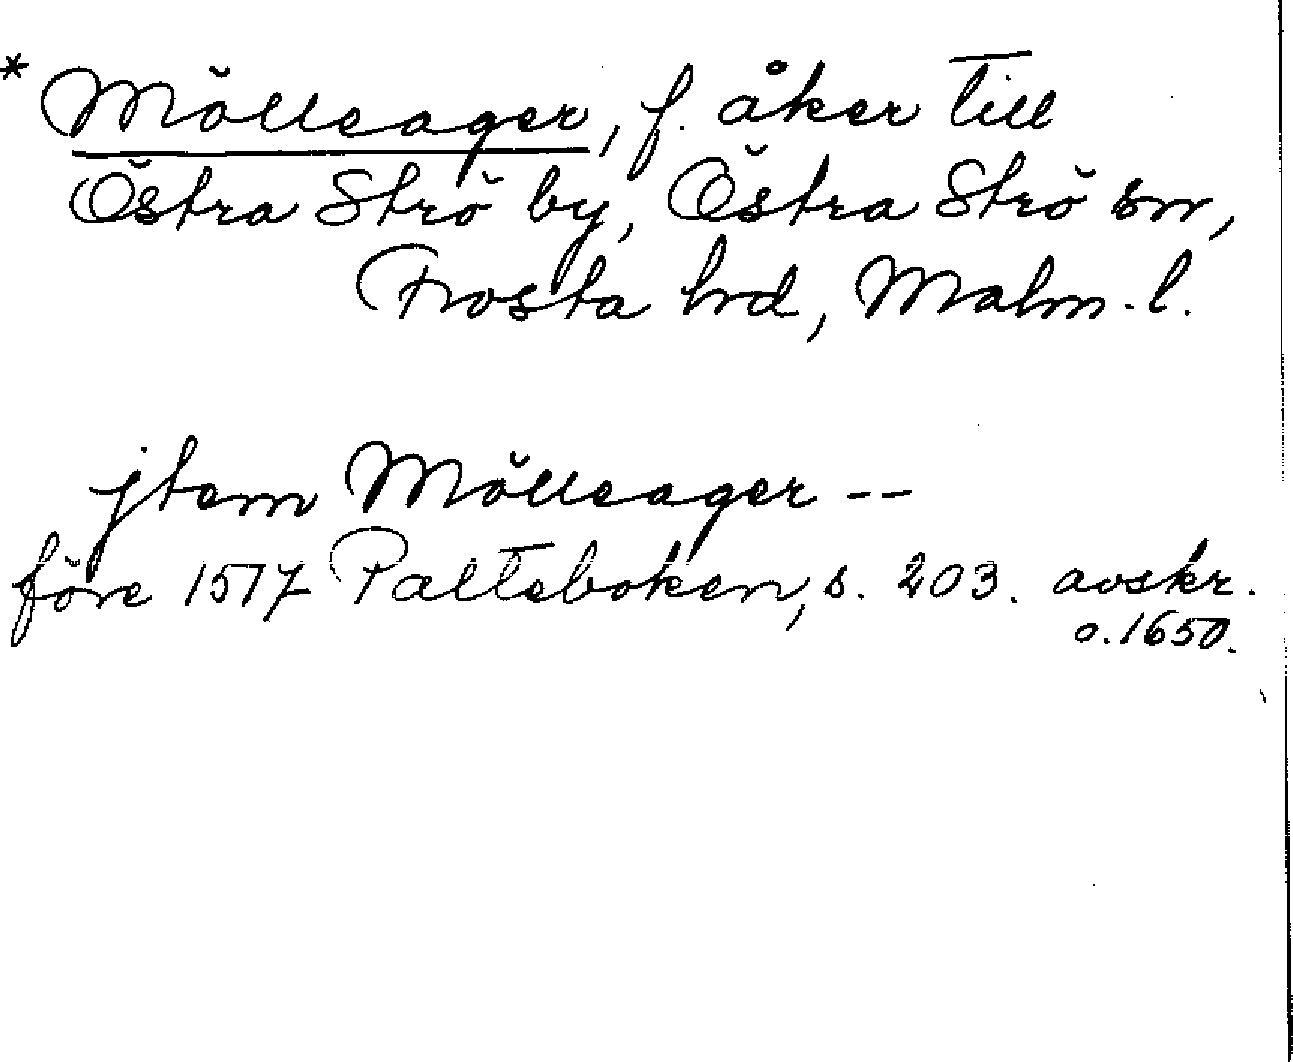 * Mölleager, f. åker till
Östra Strö by, Östra Strö sn,
Frosta hd, Malm. l.
jtem Mölleager --
före 1517 Palteboken, s. 203. avskr.
o. 1650.